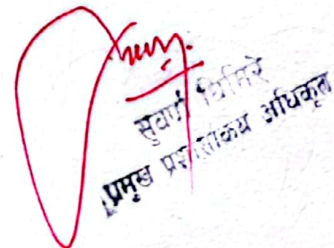 सुवर्ण घिमिरे
प्रमुख प्रशासकिय अधिकृत